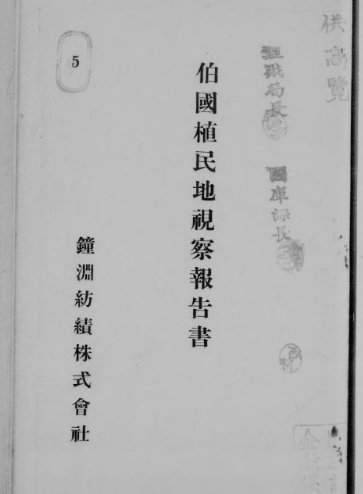 供高覽
理財局長 國庫課長
伯國植民地視察報告書
鐘淵紡績株式會社
5